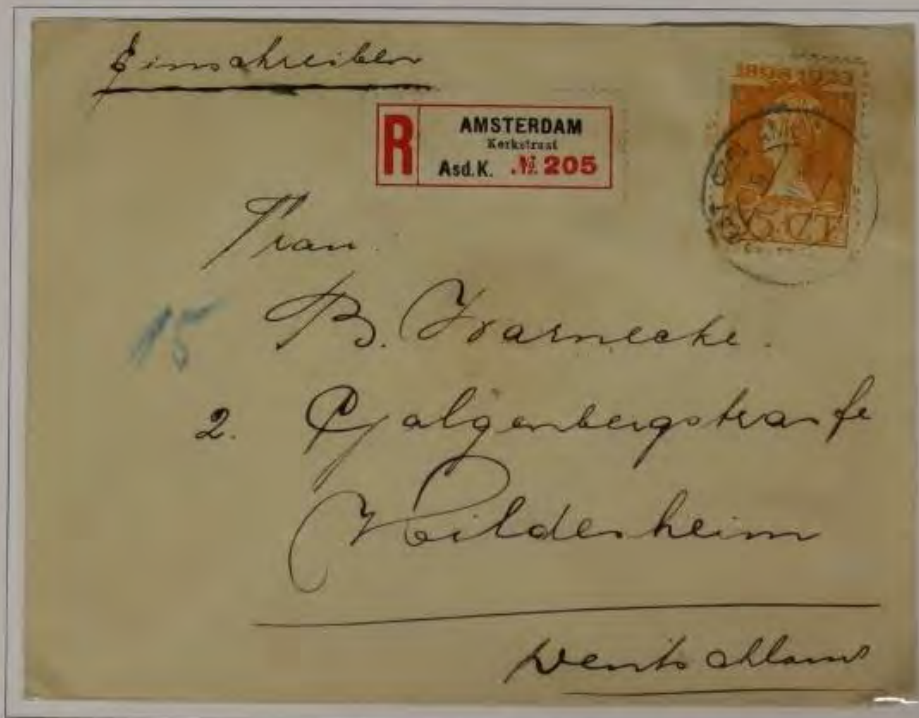 Einschreiben
1898 1923
R
AMSTERDAM
Kerkstraat
Asd.K. № 205
Frau
B. Warnecke.
15
2. Galgenbergstraße
Hildesheim
Deutschland